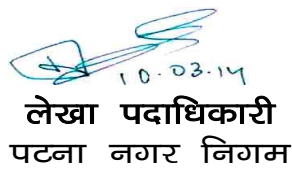 10.03.14
लेखा पदाधिकारी
पटना नगर निगम